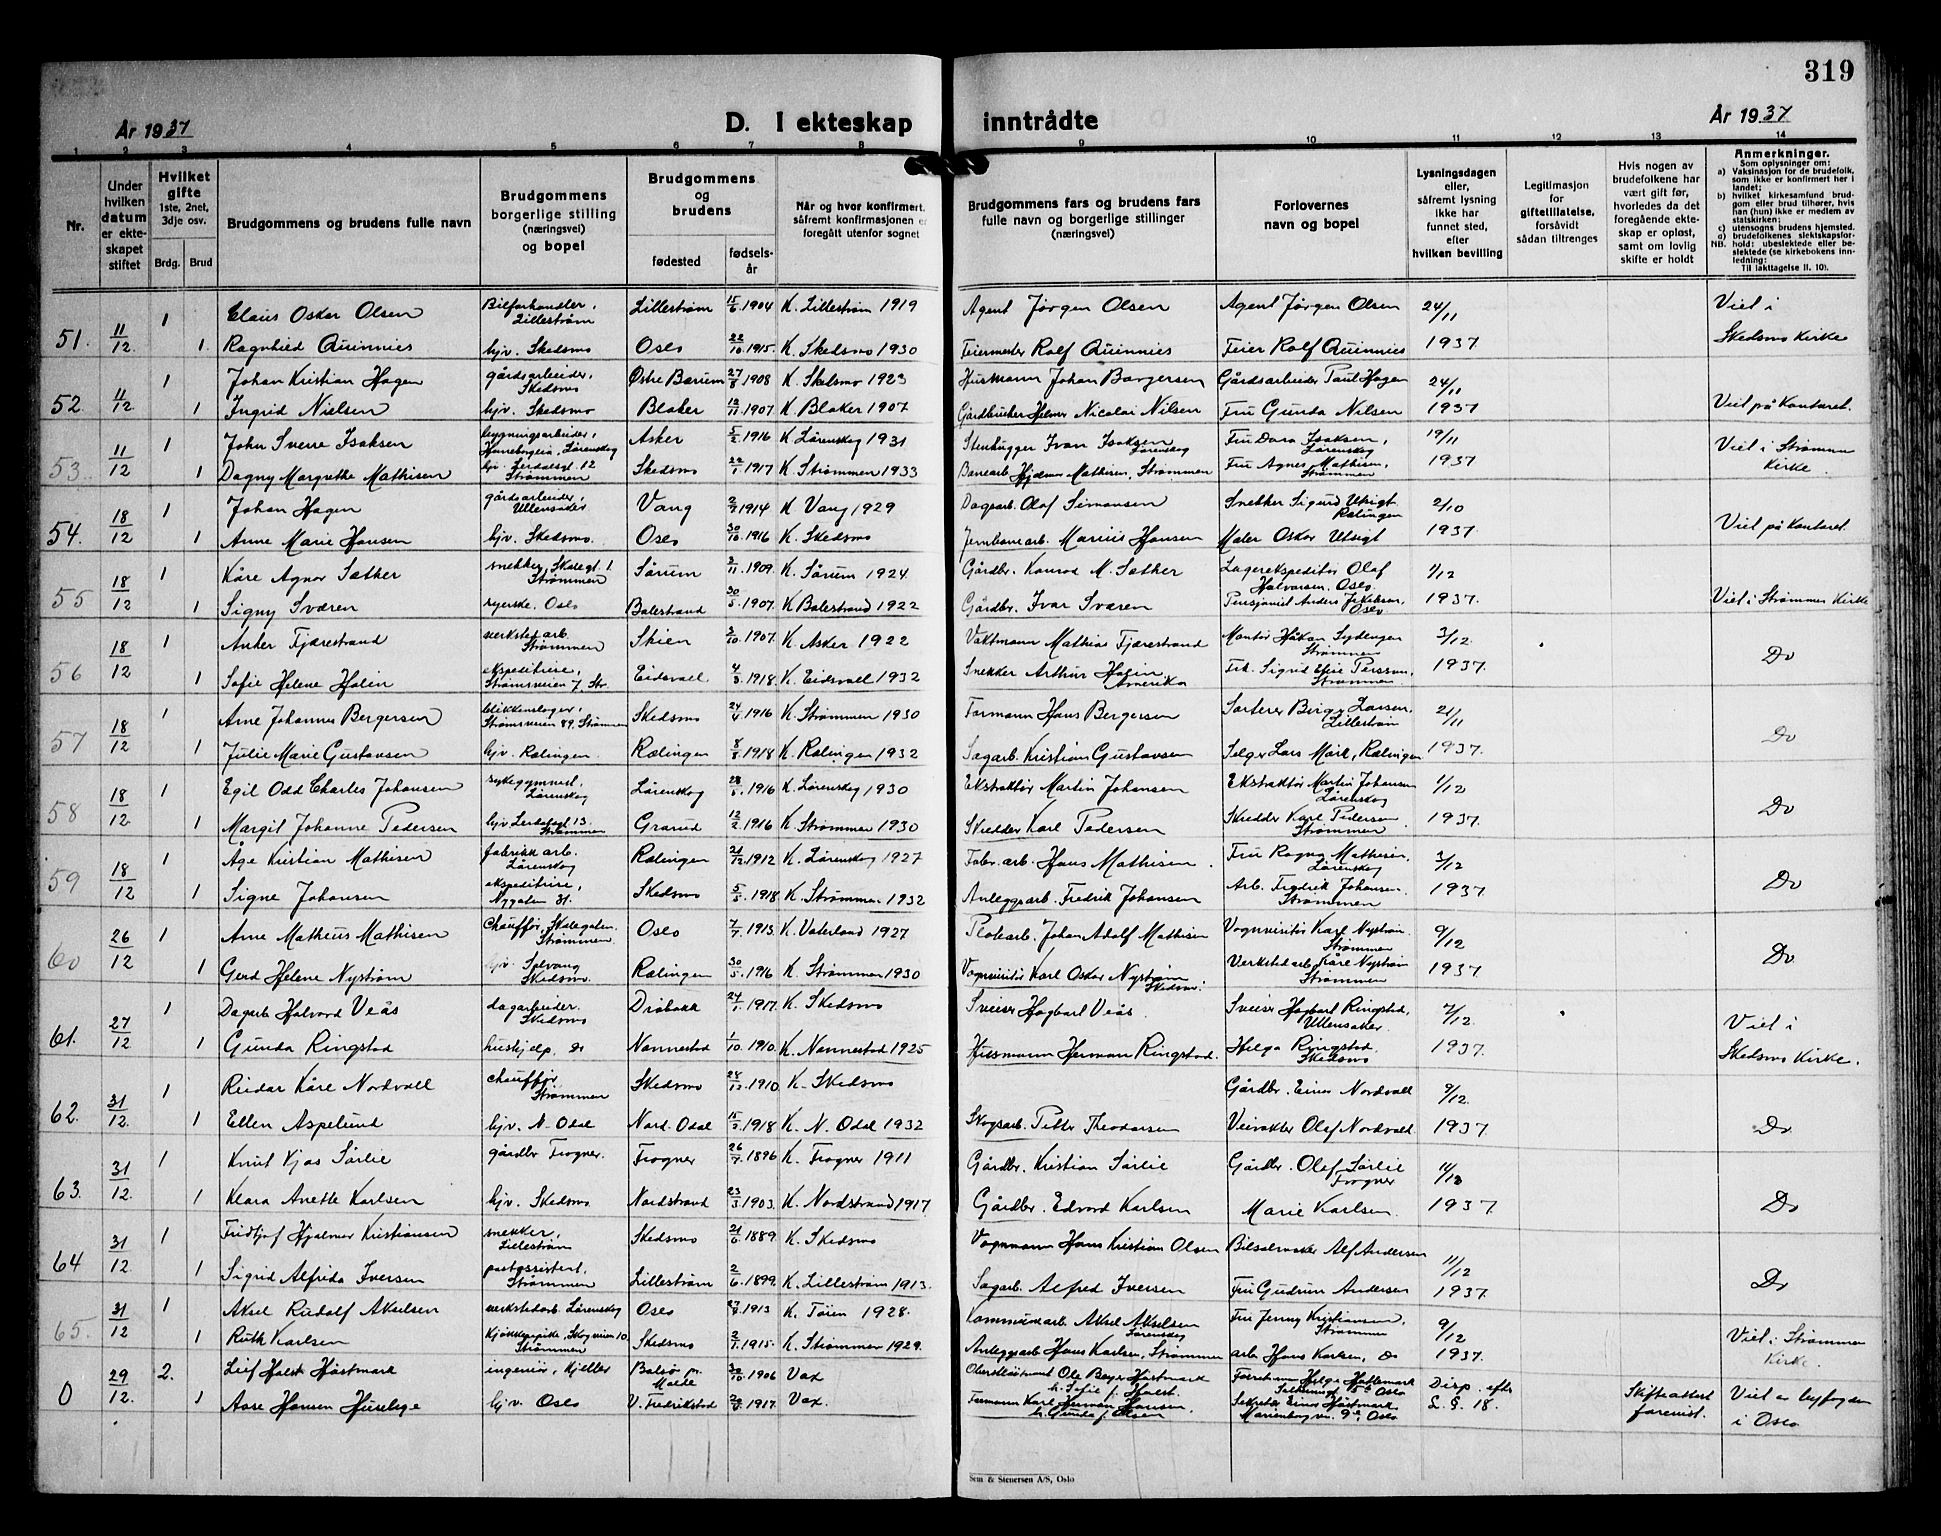 319
År 1937
D. I ekteskap inntrådte
År 1937
1 2 3 4 5 6 7 8 9 10 11 12 13 14
Nr.
Under hvilken datum er ekteskapet stiftet
Hvilket gifte 1ste, 2net, 3dje osv.
Brdg. Brud
Brudgommens og brudens fulle navn
Brudgommens borgerlige stilling (næringsvei) og bopel
Brudgommens og brudens
fødested
fødselsår
Når og hvor konfirmert, såfremt konfirmasjonen er foregått utenfor sognet
Brudgommens fars og brudens fars fulle navn og borgerlige stillinger (næringsvei)
Forlovernes navn og bopel
Lysningsdagen eller, såfremt lysning ikke har funnet sted, efter hvilken bevilling
Legitimasjon for giftetillatelse, forsåvidt sådan tiltrenges
Hvis nogen av brudefolkene har vært gift før, hvorledes da det foregående ekteskap er opløst, samt om lovlig skifte er holdt
Anmerkninger.
Som oplysninger om:
a) Vaksinasjon for de brudefolk, som ikke er konfirmert her i landet;
b) hvilket kirkesamfund brudgom eller brud tilhører, hvis han (hun) ikke er medlem av statskirken;
c) utensogns brudens hjemsted.
d) brudefolkenes slektskapsforhold: ubeslektede eller beslektede (se kirkebokens innledning:
NB. Til iakttagelse II. 10).
51. 11/12 1 Claus Oskar Olsen Bilforhandler, Lillestrøm Lillestrøm 15/6 1904 K. Lillestrøm 1919 Agent Jørgen Olsen Agent Jørgen Olsen 24/11 Viet i
1. Ragnhild Quinnies hjv. Skedsmo Oslo 22/10 1915 K. Skedsmo 1930 Feiermester Rolf Quinnies Feier Rolf Quinnies 1937. Skedsmo Kirke
52. 11/12 1 Johan Kristian Hagen gårdsarbeider, Skedsmo Østre Bærum 27/8 1908 K. Skedsmo 1923 Husmann Johan Borgersen Gårdsarbeider Paul Hagen 24/11
1 Ingrid Nielsen hjv. Skedsmo Blaker 12/11 1907 K. Blaker 1907 Gårdbruker Helmer Nicolai Nilsen Fru Gunda Nilsen 1937 Viet på Kontoret.
53. 11/12 1 John Sverre Isaksen bygningsarbeider, Lørenskog Asker 5/2 1916 K. Lørenskog 1931 Stenhugger Ivar Isaksen Lørenskog Fru Dora Isaksen, Lørenskog 19/11 Viet i Strømmen
1 Dagny Margrethe Mathisen hjv. Lerdalsgt 12 Strømmen Skedsmo 22/1 1917 K. Strømmen 1933 Banearb. Hjalmar Mathisen, Strømmen Fru Agnes Mathisen, Strømmen 1937 Kirke.
54. 18/12 1 Johan Hagen gårdsarbeider, Ullensaker Vang 2/7 1914 K. Vang 1929 Dagarb. Olaf Simonsen Snekker Sigurd Utsigt Rælingen 2/10
1 Anne Marie Hansen hjv. Skedsmo. Oslo 30/10 1916 K. Skedsmo Jernbanearb. Marius Hansen Maler Oskar Utsigt 1937. Viet på Kontoret.
55 18/12 1 Kåre Agnar Sæther snekker, Skolegt. 1. Strømmen Sørum 3/11 1909. K. Sørum 1924. Gårdbr. Konrad M. Sæther Lagerekspeditør Olaf Halvorsen, Oslo. 1/12
1 Signy Sværen syerske. Oslo Balestrand 30/5 1907. K. Balestrand 1922 Gårdbr. Ivar Sværen Pensjonist Anders Oslo. 1937. Viet i Strømmen Kirke
56 18/12 1 Anker Fjærestrand verksted arb. Strømmen Skien 3/10 1907. K. Asker 1922 Vaktmann Mathias Fjærestrand Montør Håkon Sydengen Strømmen 3/12
1 Sofie Helene Holin ekspeditrise, Strømsveien 7, Str. Eidsvoll 4/3 1918. K. Eidsvoll 1932 Snekker Arthur Holin Amerika Frk. Sigrid Elsie Persson, Strømmen. 1937. Do
57 18/12 1 Arne Johannes Bergersen blikkenslager, Strømsveien 89, Strømmen Skedsmo 24/4 1916 K. Strømmen 1930 Formann Hans Bergersen Sorterer Birger Larsen, Lillestrøm 21/11
1 Julie Marie Gustavsen hjv. Rælingen. Rælingen 8/8 1918 K. Rælingen 1932 Sagarb. Kristian Gustavsen Selger Lars Mork, Rælingen 1937. Do
58 18/12 1 Egil Odd Charles Johansen sykegymnast. Lørenskog Lørenskog 28/5 1916 K. Lørenskog 1930 Ekstraktør Martin Johansen Ekstraktør Martin Johansen Lørenskog 1/12
1 Margit Johanne Pedersen hjv Lerdalsgt 13. Strømmen Grorud 12/2 1916 K. Strømmen 1930 Skredder Karl Pedersen Skredder Karl Pedersen Strømmen 1937. Do
59 18/12 1 Åge Kristian Mathisen fabrikk arb. Lørenskog Rælingen 21/12 1912 K. Lørenskog 1927 Fabr. arb. Hans Mathisen Fru Ragna Mathisen, Lørenskog 3/12
1 Signe Johansen ekspeditrise, Nygaten 31. Skedsmo 5/5 1918 K. Strømmen 1932 Anleggsarb. Fredrik Johansen Arb. Fredrik Johansen. Strømmen 1937. Do
60 26/12 1 Arne Matheus Mathisen Chauffør, Skolegaten. Strømmen Oslo 7/7 1913. K. Vaterland 1927 Platearb. Johan Adolf Mathisen Vognvisitør Karl Nystrøm Strømmen 9/12
1 Gerd Helene Nystrøm hjv. Solvang Skedsmo. Rælingen 30/5 1916 K. Strømmen 1930 Vognvisitør Karl Oskar Nystrøm Skedsmo. Verkstedarb. Kåre Nystrøm Strømmen 1937. Do
61. 27/12 1 Dagarb Halvord Veås dagarbeider. Skedsmo Drøbakk 24/1 1917. K. Skedsmo Sveiser Hagbart Veås Sveiser Hagbart Ringstad, Ullensaker. 7/12. Viet i
1 Gunda Ringstad hushjelp. Do Nannestad 1/10 1910. K. Nannestad 1925 Husmann Herman Ringstad. Helga Ringstad. Skedsmo 1937. Skedsmo Kirke.
62. 31/12. 1 Reidar Kåre Nordvall chauffør Strømmen Skedsmo 28/12 1910. K. Skedsmo Gårdbr. Einar Nordvall 9/12.
1 Ellen Aspelund hjv. N. Odal Nord. Odal 15/3 1918 K. N. Odal 1932 Skogsarb. Petter Theodorsen Veivokter Olaf Nordvall. 1937. Do
63. 31/12 1 Knut Sørlie gårdbr Frogner. Frogner 26/7 1896 K. Frogner 1911 Gårdbr. Kristian Sørlie Gårdbr. Olaf Sørlie Frogner 14/12
1 Klara Anette Karlsen hjv. Skedsmo Nordstrand 23/3 1903. K. Nordstrand 1917 Gårdbr. Edvard Karlsen Marie Karlsen. 1937 Do
64 31/12 1 Fridtjof Hjalmar Kristiansen snekker, Lillestrøm Skedsmo 21/6 1889. K. Skedsmo Vognmann Hans Kristian Olsen Bilsalmaker Alf Andersen 11/12
1 Sigrid Alfrida Iversen postassistent, Strømmen Lillestrøm 2/6 1899. K. Lillestrøm 1913. Sagarb. Alfred Iversen Fru Gudrun Andersen 1937. Do
65. 31/12 1 Aksel Rudolf Akselsen verkstedarb. Lørenskog Oslo 27/9 1913 K. Tøien 1928. Kommunearb Aksel Akselsen Lørenskog Fru Jenny Kristiansen, Strømmen 9/12
1 Ruth Karlsen kjøkkenpike, Skogveien 10. Strømmen Skedsmo 2/7 1915. K. Strømmen 1929. Anleggsarb Hans Karlsen, Strømmen arb. Hans Karlsen, Do 1937. Viet i Strømmen Kirke.
0 29/12. 2. Leif Holst Høstmark ingeniør, Kjeller Bolsø pr. Molde 30/10 1906 Vax Oberstløitnant Ole Beyer Høstmark h. Sofie f. Holst. Forretnm Helge Høstmark Oslo Disp. efter Skifteattest Viet av byfogden
1 Aase Hansen Huselege hjv. Oslo V. Fredrikstad 1917. Vax. Formann Karl Herman Hansen, h. Gunda f. Olsen Sekretær Einar Høstmark Marienborgvn. 9c, Oslo L. §. 18. forevist. i Oslo
Sem & Stenersen A/S, Oslo